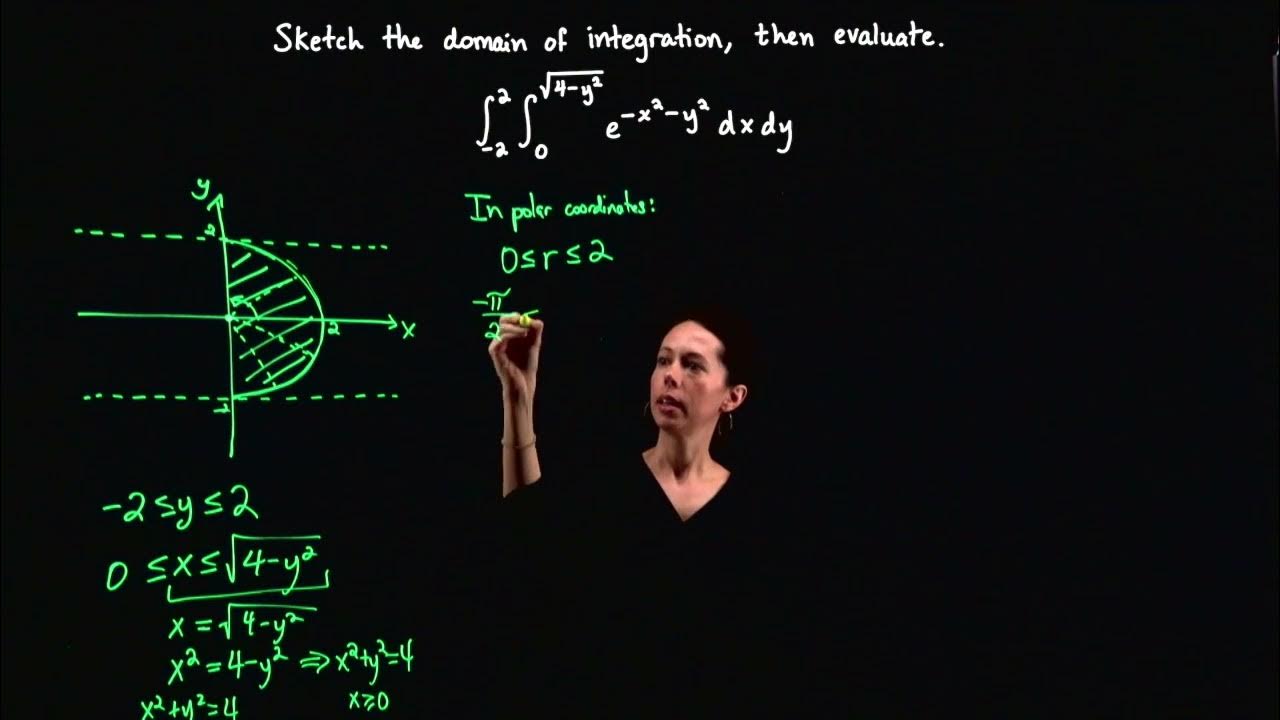 Sketch the domain of integration, then evaluate.
∫_{-2}^{2} ∫_{0}^{√(4-y²)} e^{-x²-y²} dx dy
y
2
x
2
-2
In polar coordinates:
0 ≤ r ≤ 2
-π/2 ≤
-2 ≤ y ≤ 2
0 ≤ x ≤ √(4-y²)
x = √(4-y²)
x² = 4-y² ⇒ x²+y²=4
x²+y²=4
x≥0